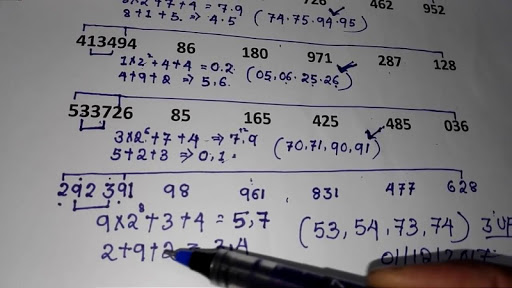 462 952
8+1+5. ⇒ 4.5 (74.75.94.95)
413494 86 180 971 287 128
1×2+4+4=0.2. (05,06.25.26)
4+9+2 ⇒ 5,6.
533726 85 165 425 485 036
3×2⁶+7+4 ⇒ 7.9 (70,71,90,91)
5+2+3 ⇒ 0,1.
292391 98 961 831 477 628
9×2⁸+3+4 = 5,7 (53,54,73,74)
2+9+2 = 3.4